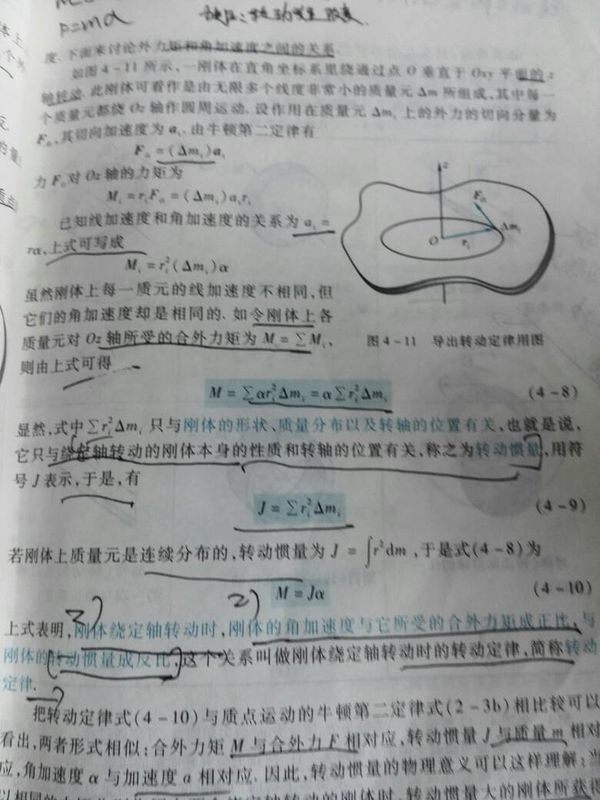 F=ma
度. 下面来讨论外力矩和角加速度之间的关系
如图4-11所示,一刚体在直角坐标系里绕通过点O垂直于Oxy平面的z
轴转动. 此刚体可看作是由无限多个线度非常小的质量元Δm所组成,其中每一
个质量元都绕Oz轴作圆周运动. 设作用在质量元Δmᵢ上的外力的切向分量为
Fᵢₜ,其切向加速度为aₜ. 由牛顿第二定律有
Fᵢₜ=(Δmᵢ)aₜ
力Fᵢₜ对Oz轴的力矩为
Mᵢ=rᵢFᵢₜ=(Δmᵢ)aₜrᵢ
已知线加速度和角加速度的关系为aₜ=
rα,上式可写成
Mᵢ=rᵢ²(Δmᵢ)α
虽然刚体上每一质元的线加速度不相同,但
它们的角加速度却是相同的. 如令刚体上各
质量元对Oz轴所受的合外力矩为M=∑Mᵢ,
则由上式可得
z
Fᵢₜ
Δmᵢ
O
rᵢ
图4-11 导出转动定律用图
M=∑αrᵢ²Δmᵢ=α∑rᵢ²Δmᵢ (4-8)
显然,式中∑rᵢ²Δmᵢ只与刚体的形状、质量分布以及转轴的位置有关,也就是说,
它只与绕定轴转动的刚体本身的性质和转轴的位置有关,称之为转动惯量,用符
号J表示,于是,有
J=∑rᵢ²Δmᵢ (4-9)
若刚体上质量元是连续分布的,转动惯量为J=∫r²dm,于是式(4-8)为
M=Jα (4-10)
上式表明,刚体绕定轴转动时,刚体的角加速度与它所受的合外力矩成正比,与
刚体的转动惯量成反比,这个关系叫做刚体绕定轴转动时的转动定律,简称转动
定律.
把转动定律式(4-10)与质点运动的牛顿第二定律式(2-3b)相比较可以
看出,两者形式相似;合外力矩M与合外力F相对应,转动惯量J与质量m相对
应,角加速度α与加速度a相对应. 因此,转动惯量的物理意义可以这样理解:当
以相同的力矩分别作用于两个绕定轴转动的刚体时,转动惯量大的刚体所获得